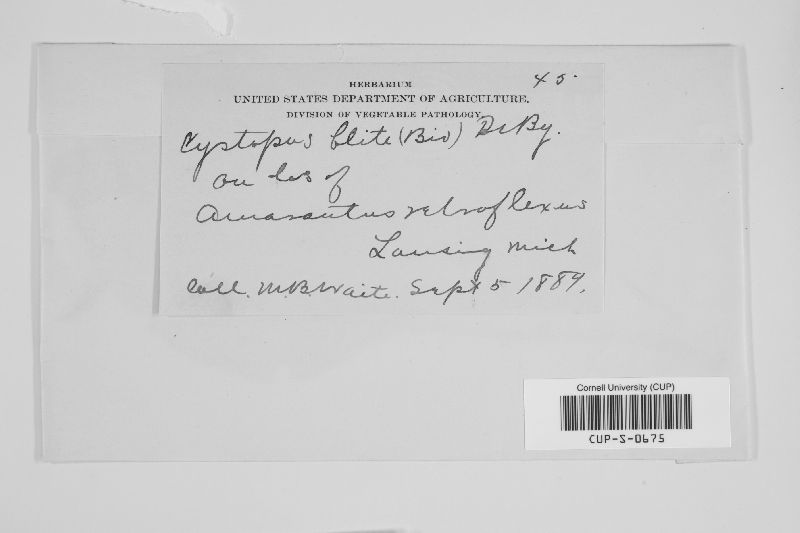 45.
HERBARIUM
UNITED STATES DEPARTMENT OF AGRICULTURE.
DIVISION OF VEGETABLE PATHOLOGY
Cystopus blite (Biv) DeBy.
on lvs of
Amarantus retroflexus
Lansing Mich
Coll. M.B. Waite. Sept 5 1889.
Cornell University (CUP)
CUP-S-0675